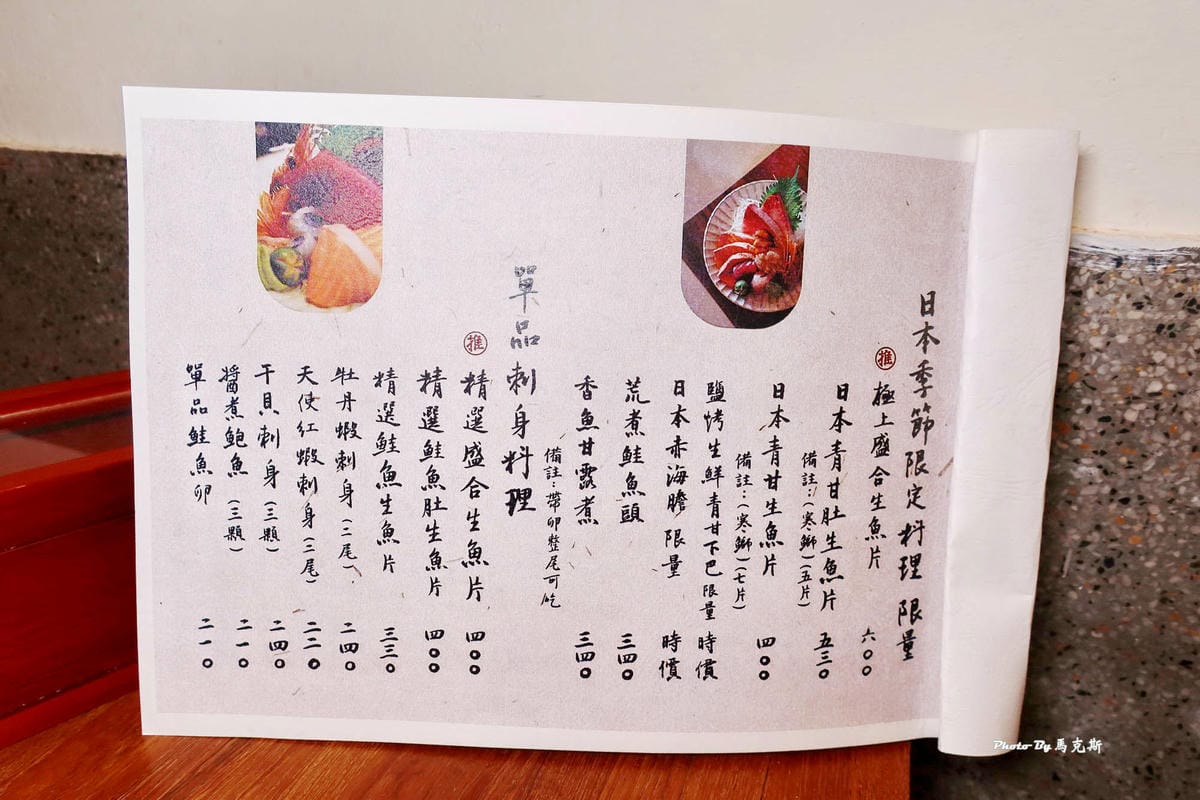 日本季節限定料理 限量
推
極上盛合生魚片 六〇〇
日本青甘肚生魚片 五三〇
備註：(寒鰤)(五片)
日本青甘生魚片 四〇〇
備註：(寒鰤)(七片)
鹽烤生鮮青甘下巴限量 時價
日本赤海膽 限量 時價
荒煮鮭魚頭 三四〇
香魚甘露煮 三四〇
備註：帶卵整尾可吃
單品刺身料理
推
精選盛合生魚片 四〇〇
精選鮭魚肚生魚片 四〇〇
精選鮭魚生魚片 三三〇
牡丹蝦刺身(二尾) 二四〇
天使紅蝦刺身(三尾) 二二〇
干貝刺身(三顆) 二四〇
醬煮鮑魚(三顆) 二一〇
單品鮭魚卵 二一〇
Photo By 馬克斯